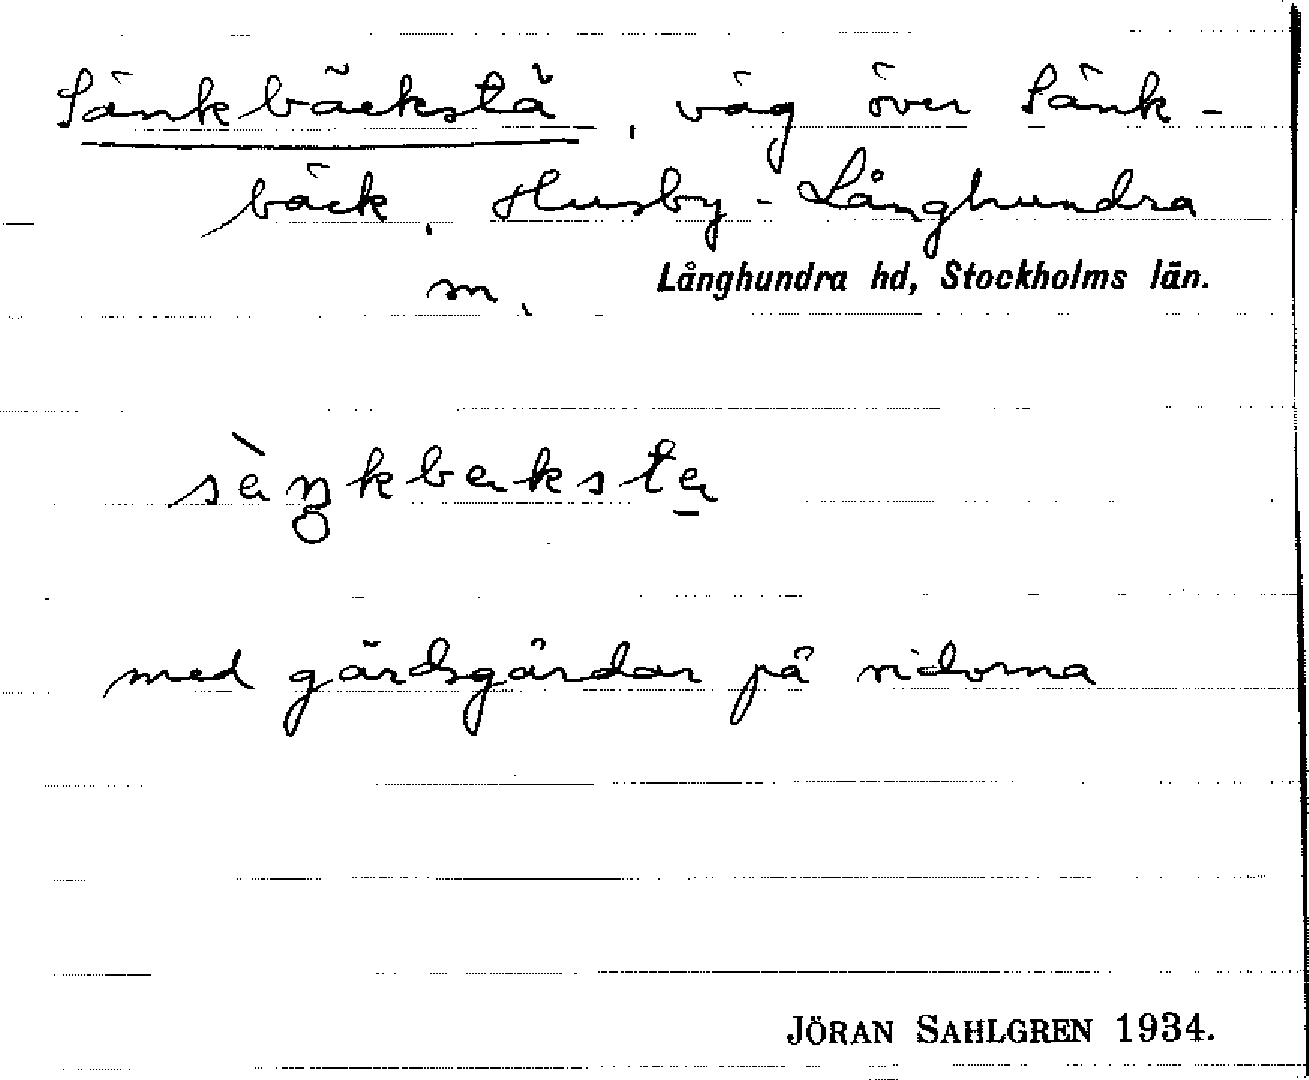 Sänkbäckstä, väg över Sänk-
bäck, Husby-Långhundra
sn,
Långhundra hd, Stockholms län.
med gärdsgårdar på sidorna
JÖRAN SAHLGREN 1934.